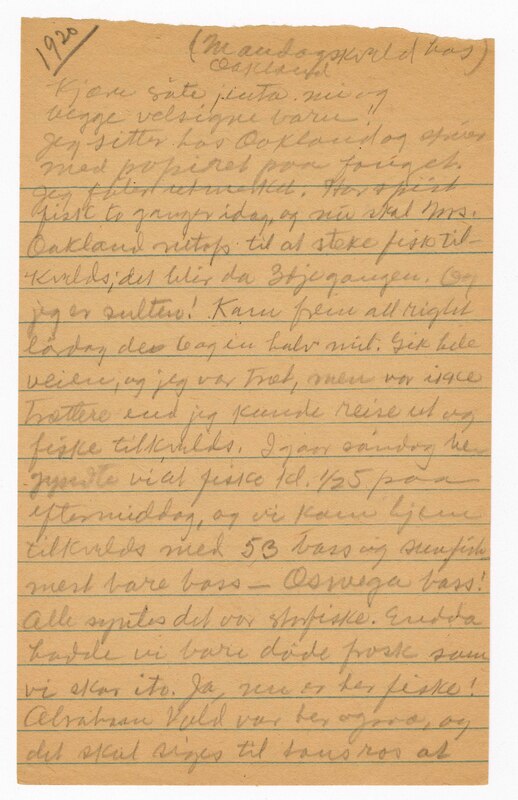 1920
(Mandagskveld hos
Oakland)
Kjære søte jinta mi og
begge velsigne barn!
Jeg sitter hos Oakland og skriver
med papiret paa fanget.
Jeg føler utmerket. Har spist
fisk to ganger idag, og nu skal Mrs.
Oakland netop til at steke fisk til-
kvelds; det blir da 3dje gangen. Og
jeg er sulten! Kam frem all right
lørdag de 6 og en halv mil. Gik hele
veien, og jeg var træt, men var ikke
trættere end jeg kunde reise ut og
fiske tilkvelds. Igaar søndag be-
gyndte vi at fiske kl. 1/25 paa
eftermiddag, og vi kam hjem
tilkvelds med 53 bass og sunfish
mest bare bass — Oswega bass!
Alle syntes det var storfiske. Endda
hadde vi bare døde frosk som
vi skar ito. Ja, nu er her fiske!
Abraham Vold var her ogsaa, og
det skal siges til hans ros at